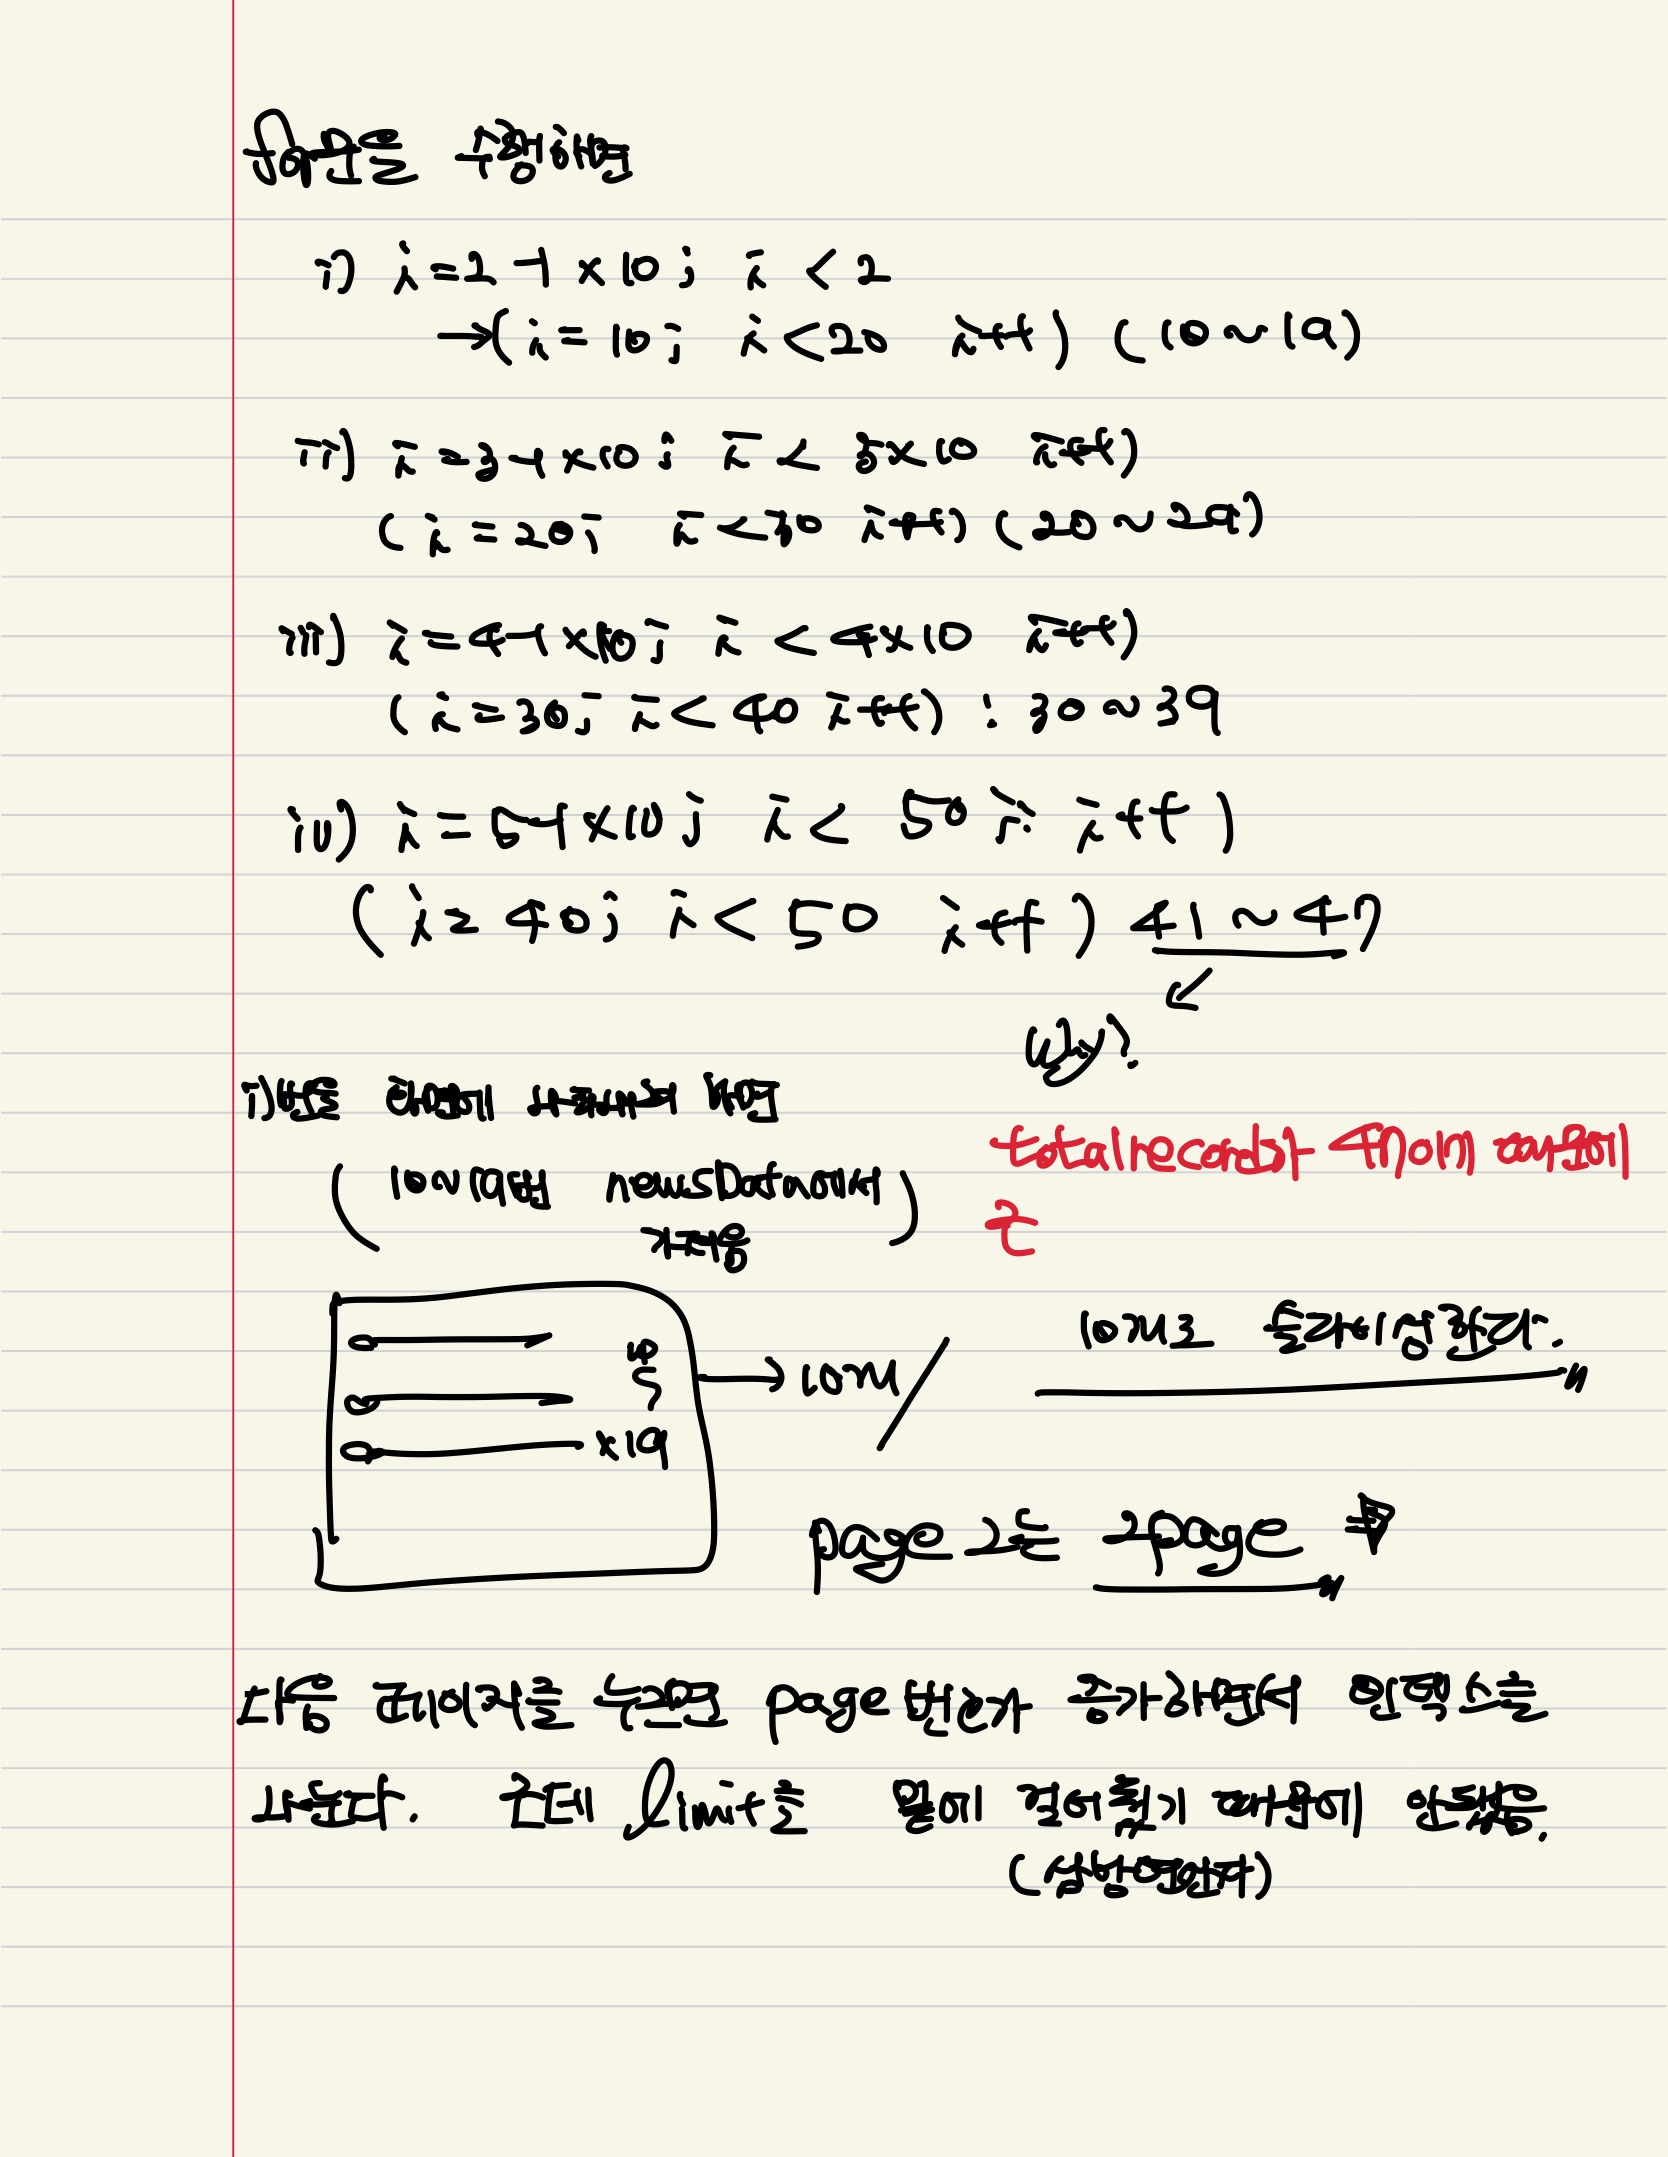 for문을 수행하면
i) i=2-1×10; i<2
→(i=10; i<20 i++) (10~19)
ii) i=3-1×10; i<3×10 i++)
(i=20; i<30 i++) (20~29)
iii) i=4-1×10; i<4×10 i++)
(i=30; i<40 i++) : 30~39
iv) i=5-1×10; i<50; i++)
(i=40; i<50 i++) 41~47
why?
i)번을 화면에
(10~19번 newsData에서
가져옴)
totalrecord가 47이기 때문에
10개로 슬라이싱한다.
10
×19
→10개
page 2는 2page
다음 페이지를 누르면 page 번호가 증가하면서 인덱스를
나눈다. 근데 limit를 밑에 걸어놨기 때문에